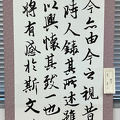 今亦由今之視昔
時人錄其所述雖
以興懷其致一也
將有感於斯文